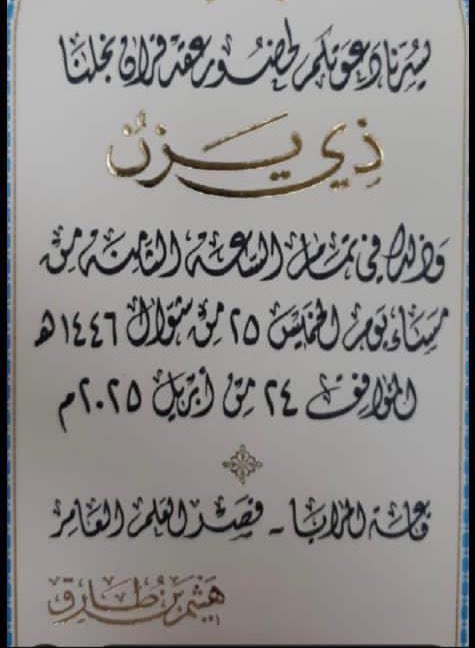 يسرنا دعوتكم لحضور عقد قران نجلنا
ذي يزن
وذلك في تمام الساعة الثامنة من
مساء يوم الخميس ٢٥ من شوال ١٤٤٦ هـ
الموافق ٢٤ من أبريل ٢٠٢٥م
قاعة المزايا - قصر العلم العامر
هيثم بن طارق